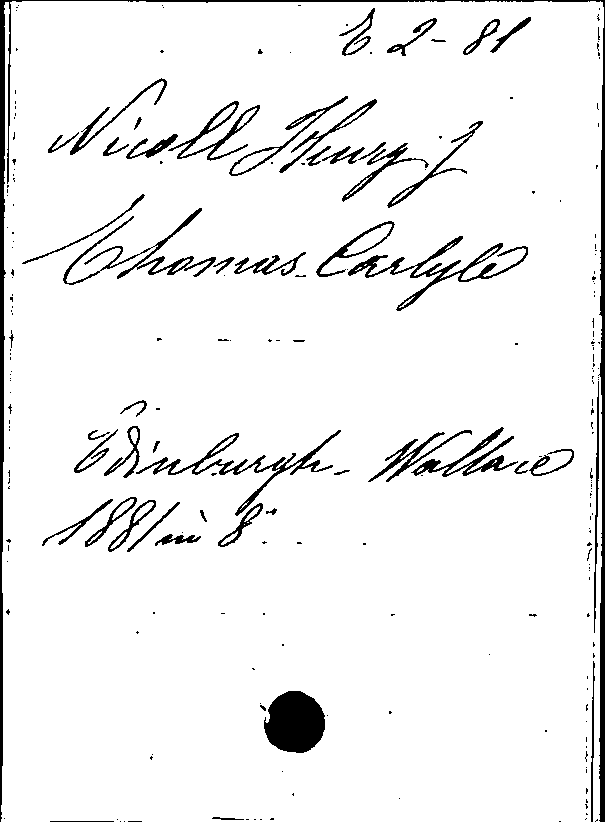 E. 2-81
Nicoll Henry J
Thomas Carlyle
Edinburgh - Wallace
1881 in 8°